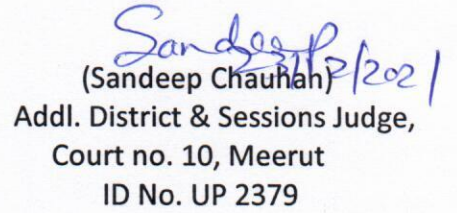 Sandeep
/12/2021
(Sandeep Chauhan)
Addl. District & Sessions Judge,
Court no. 10, Meerut
ID No. UP 2379